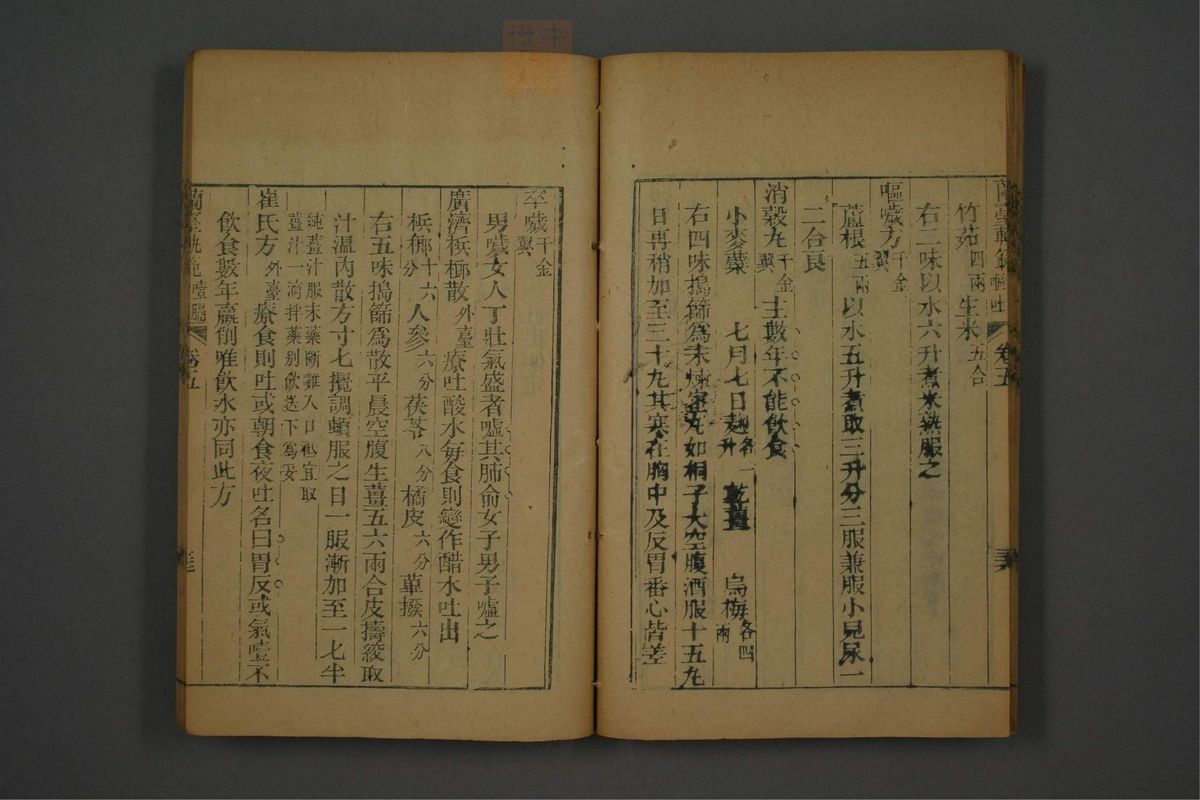 竹茹四兩 生米五合
右二味以水六升煮米熟服之
嘔噦方千金翼
蘆根五兩 以水五升煮取三升分三服兼服小兒尿一
二合良
消榖丸千金翼 主數年不能飲食
小麥蘗 七月七日麯各一升 乾薑 烏梅各四兩
右四味搗篩爲末煉蜜丸如桐子大空腹酒服十五丸
日再稍加至三十丸其寒在胸中及反胃番心皆差
卷五
卒噦千金翼
男噦女人丁壯氣盛者噓其肺俞女子男子噓之
廣濟梹榔散外臺 療吐酸水每食則變作醋水吐出
梹榔十六分 人參六分 茯苓八分 橘皮六分 蓽撥六分
右五味搗篩爲散平晨空腹生薑五六兩合皮擣絞取
汁溫內散方寸匕攪調頓服之日一服漸加至一匕半
純薑汁服末藥斷難入口祗宜取
薑汁一滴拌藥別飲送下爲妥
崔氏方外臺 療食則吐或朝食夜吐名曰胃反或氣噎不
飲食數年羸削唯飲水亦同此方
蘭臺軌範 噎膈 卷五